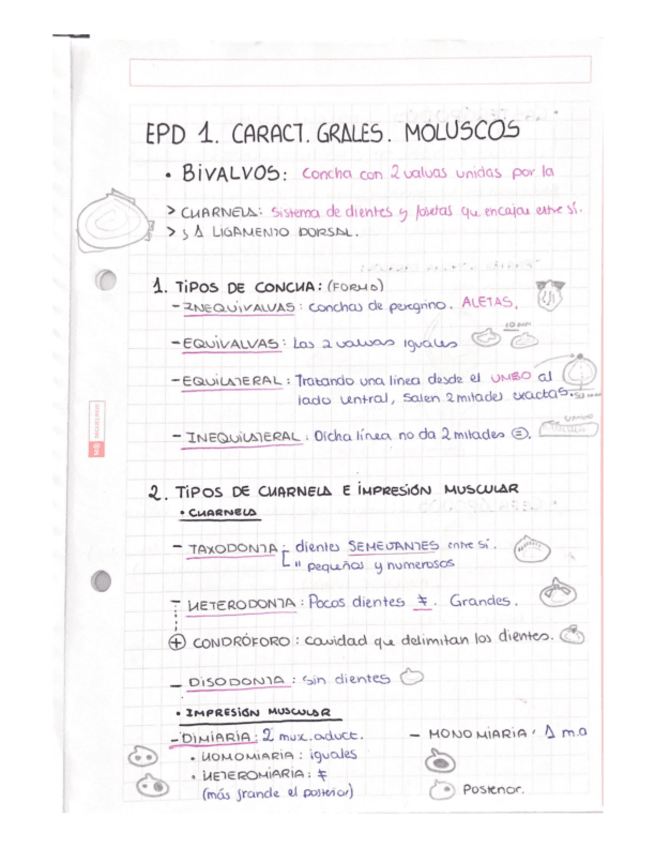 EPD 1. CARACT. GRALES. MOLUSCOS
• BIVALVOS: Concha con 2 valvas unidas por la
> CHARNELA: Sistema de dientes y fosetas que encajan entre sí.
> y 1 LIGAMENTO DORSAL.
1. TIPOS DE CONCHA: (FORMA)
- INEQUIVALVAS: conchas de peregrino. ALETAS.
- EQUIVALVAS: Las 2 valvas iguales
- EQUILATERAL: Tratando una línea desde el UMBO al
lado ventral, salen 2 mitades exactas.
- INEQUILATERAL: Dicha línea no da 2 mitades =.
UMBO
2. TIPOS DE CHARNELA E IMPRESIÓN MUSCULAR
• CHARNELA
- TAXODONTA: dientes SEMEJANTES entre sí.
" pequeños y numerosos
- HETERODONTA: Pocos dientes ≠. Grandes.
+ CONDRÓFORO: Cavidad que delimitan los dientes.
- DISODONTA: Sin dientes
• IMPRESIÓN MUSCULAR
- DIMIARIA: 2 mux. aduct.
• HOMOMIARIA: iguales
• HETEROMIARIA: ≠
(más grande el posterior)
- MONOMIARIA: 1 m.a
Posterior.